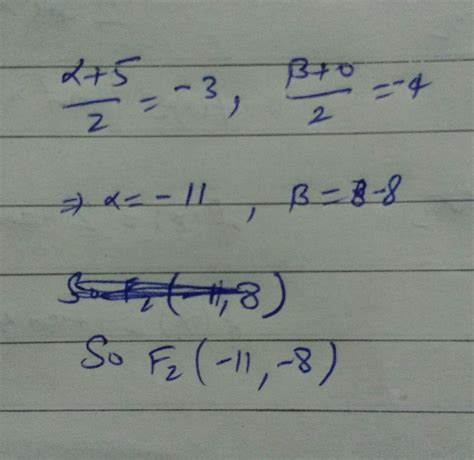 α+5/2 = -3, β+0/2 = -4
⇒ α = -11, β = -8
So F₂(-11, 8)
So F₂(-11, -8)